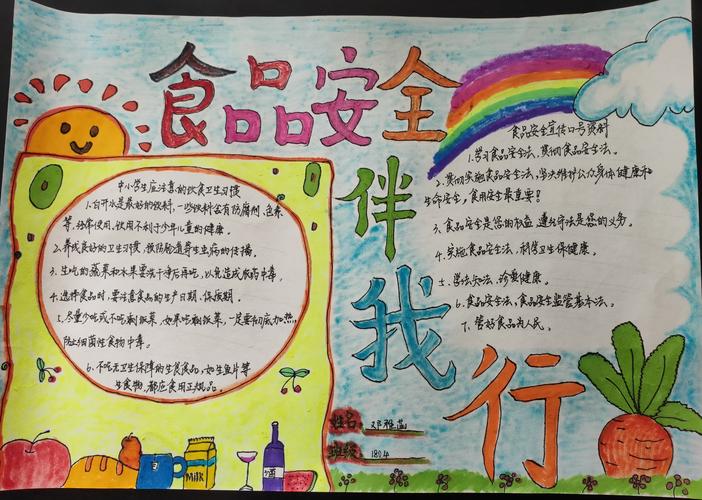 食品安全
伴
我
行
中小学生应注意的饮食卫生习惯
1.白开水是最好的饮料,一些饮料含有防腐剂、色素
等,经常使用,饮用不利于少年儿童的健康。
2.养成良好的卫生习惯,预防肠道寄生虫病的传播。
3.生吃的蔬果和水果要洗干净后再吃,以免造成农药中毒。
4.选择食品时,要注意食品的生产日期、保质期。
5.尽量少吃或不吃剩饭菜,如果吃剩饭菜,一定要彻底加热,
防止细菌性食物中毒。
6.不吃无卫生保障的生食食品,如生鱼片等
生食物,都应食用正规品。
食品安全宣传口号资料
1.学习食品安全法,贯彻食品安全法。
2.贯彻实施食品安全法,坚决维护公众身体健康和
生命安全,食用安全最重要!
3.食品安全是您的权益,遵纪守法是您的义务。
4.实施食品安全法,利您卫生保健康。
5.学法知法,珍爱健康。
6.食品安全法,食品安全监管基本法。
7.管好食品为人民。
MILK
酒
姓名: 邓雅
班级: 1804